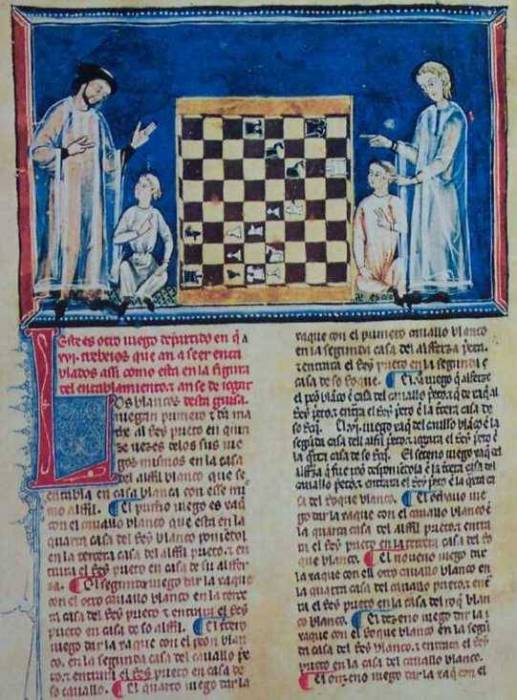 Este es otro iuego departido en q̃ a
xvi. trebeios que an a seer enta
blados assi como esta en la figura
del entablamiento. ⁊ an se de iogar
desta guisa.
Los blancos
iuegan primero ⁊ dã ma
te al Rey prieto en
uezes delos sus iue
gos mismos en la casa
del alffil blanco que se
entabla en casa blanca con esse mis
mo alffil. El primero iuego es xaq̃
con el cauallo blanco que esta en la
quarta casa del Rey blanco poniẽdol
en la tercera casa del alffil prieto. ⁊ en
trara el Rey prieto en casa de su alffer
za. El segundo iuego dar la xaque
con el otro cauallo blanco en la terce
ra casa del Rey prieto ⁊ entrara el Rey
prieto en casa de so alffil. El tercero
iuego dar la xaque con el peon blan
co. en la segunda casa del cauallo prie
to. ⁊ entrara el Rey prieto en casa de
so cauallo. El quarto iuego dar la
xaque con el primero cauallo blanco
en la segunda casa del alfferza prieta.
⁊ entrara el Rey prieto en la segunda
casa de so Roque. El iuego q̃ alfferze
el peõ blãco en casa del cauallo prieto
Rey prieto. ⁊ entra el Rey prieto ẽ la tercera casa de
so Roq̃. El iuego xaq̃ del cauallo blãco ẽ la
segũda casa del alffil prieto. ⁊ entrara el Rey prieto ẽ
la q̃rta casa de so Roq̃. El seteno iuego xaq̃ del
alfferza
cauallo prieto. ⁊ entrara el Rey prieto ẽ la quinta ca
sa del Roque blanco. El ochauo iue
go dar la xaque con el cauallo blanco ẽ
la quarta casa del alffil prieto. ⁊ entra
ra el Rey prieto en la tercera casa del ro
que blanco. El noueno iuego dar
la xaque con el otro cauallo blanco en
la quarta casa del cauallo prieto. ⁊ entra
ra el Rey prieto en la casa del roq̃ blan
co. El dezeno iuego dar la
xaque con el Roque blanco en la segũ
da casa del Rey blanco. ⁊ entrara el Rey
prieto en la casa del cauallo blanco.
El onzeno iuego dar la xaq̃ con el